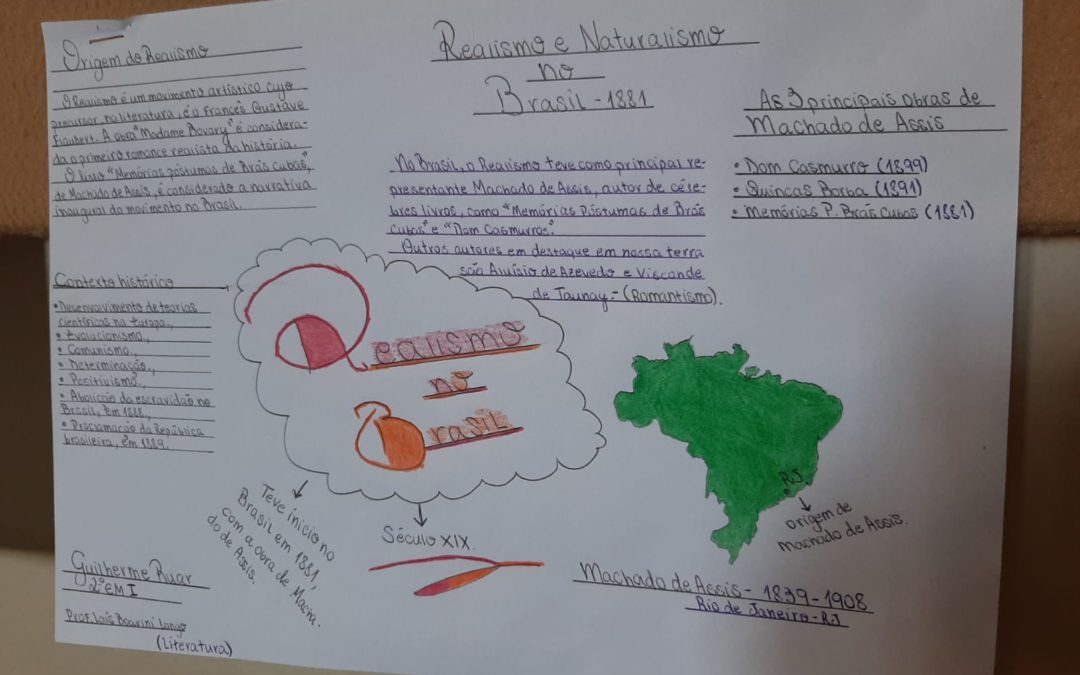 Origem do Realismo
O Realismo é um movimento artístico cujo
precursor, na literatura, é o Francês Gustave
Flaubert. A obra "Madame Bovary" é considera-
da o primeiro romance realista da história.
O livro "Memórias póstumas de Brás Cubas",
de Machado de Assis, é considerado a narrativa
inaugural do movimento no Brasil.
Realismo e Naturalismo
no
Brasil - 1881
No Brasil, o Realismo teve como principal re-
presentante Machado de Assis, autor de céle-
bres livros, como "Memórias Póstumas de Brás
Cubas" e "Dom Casmurro".
Outros autores em destaque em nossa terra
são Aluísio de Azevedo e Visconde
de Taunay. - (Romantismo).
As 3 principais obras de
Machado de Assis
• Dom Casmurro (1899)
• Quincas Borba (1891)
• Memórias P. Brás Cubas (1881)
Contexto histórico
• Desenvolvimento de teorias
científicas na Europa.,
• Evolucionismo.,
• Comunismo.,
• Determinação.,
• Positivismo.,
• Abolição da escravidão no
Brasil, em 1888.,
• Proclamação da República
brasileira, em 1889.
Realismo
no
Brasil
Teve início no
Brasil em 1881,
com a obra de Macha.
do de Assis.
Século XIX.
RJ
origem de
machado de Assis.
Machado de Assis - 1839 - 1908
Rio de Janeiro - RJ
Guilherme Ruar
2º EM I
Prof. Laís Boarini Longo
(Literatura)